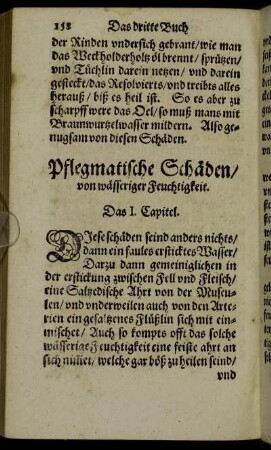 158 Das dritte Buch
der Rinden vndersich gebrant/wie man
das Weckholderholtz öl brennt/sprützen/
vnd Tüchlin darein netzen/vnd darein
gesteckt/das Resolvierts/vnd treibts alles
herauß/biß es heil ist. So es aber zu
scharpff were das Oel/so muß mans mit
Braunwurtzelwasser mildern. Also ge-
nugsam von diesen Schäden.
Pflegmatische Schäden/
von wässeriger Feuchtigkeit.
Das I. Capitel.
DIese schäden seind anders nichts/
dann ein faules ersticktes Wasser/
Darzu dann gemeiniglichen in
der erstickung zwischen Fell vnd Fleisch/
eine Saltzedische Ahrt von der Muscu-
len/vnd vnderweilen auch von den Arte-
rien ein gesaltzenes Flüßlin sich mit ein-
mischet/Auch so kompts offt das solche
wässerige Feuchtigkeit eine feiste ahrt an
sich nimet/welche gar böß zu heilen seind/
vnd